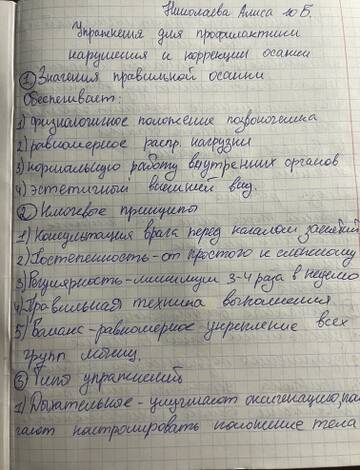 Николаева Алиса 10 Б.
Упражнения для профилактики
нарушения и коррекции осанки
① Значения правильной осанки
Обеспечивает:
1) физиологичное положение позвоночника
2) равномерное распр. нагрузки
3) нормальную работу внутренних органов
4) эстетичный внешний вид.
② Ключевые принципы
1) Консультация врача перед началом занятий
2) Постепенность - от простого к сложному
3) Регулярность - минимум 3-4 раза в неделю
4) Правильная техника выполнения
5) Баланс - равномерное укрепление всех
групп мышц.
③ Типы упражнений
1) Дыхательное - улучшают оксигенацию, помо
гают настроировать положение тела